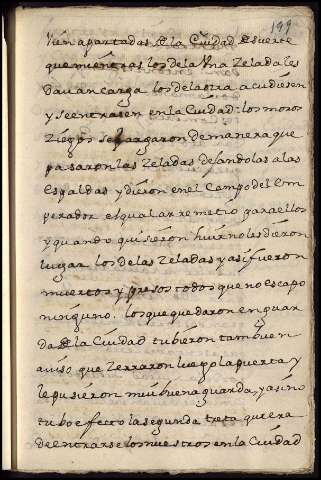 199
aun apartadas de la Ciudad de suerte
que mientras los de la Vna Zelada les
Dauan carga los de la otra acudiesen
y se entrasen en la Ciudad: los moros
Ziegos se cargaron de manera que
pasaron las Zeladas dejandolas a las
espaldas y dieron en el Campo del Em
perador el qual arremetio para ellos
y quando quisieron huir no les dieron
lugar los de las Zeladas y asi fueron
muertos y presos todos que no escapo
ninguno. los que quedaron en guar
da de la Ciudad tubieron tan buen
auiso que Zerraron luego la puerta y
le pusieron mui buena guarda, y asi no
tubo efecto la segunda treta que era
de entrarse los nuestros en la Ciudad